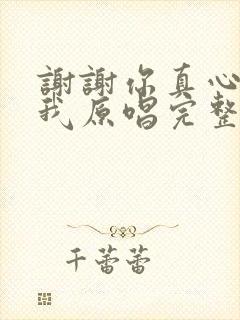 謝謝你真心
我原唱完整
千蕾蕾